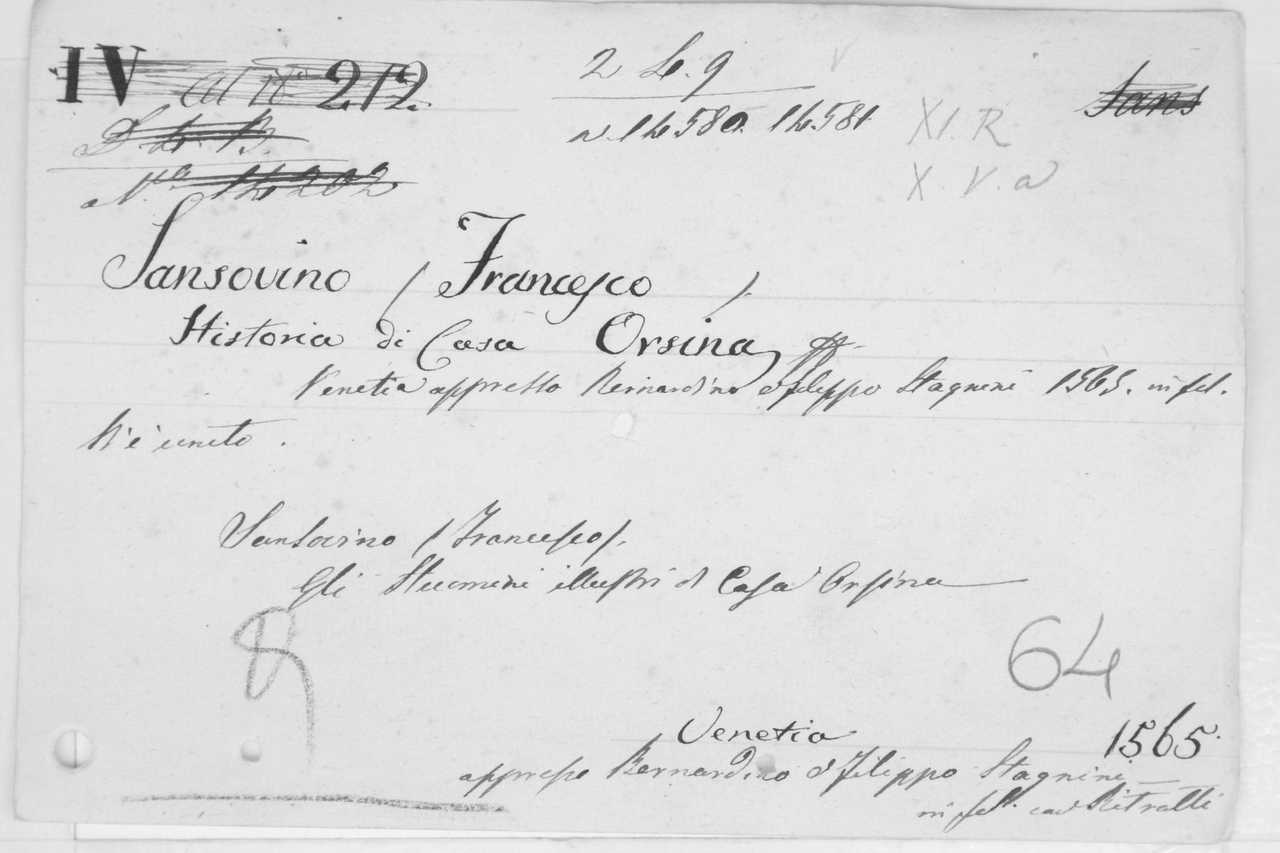 IV al n° 212.
2 L. 9
Sans
D. L. B.
n. 14580. 14581
XI. R
N.° 14202
X. V. a
Sansovino (Francesco).
Historia di Casa Orsina,
Venetia appresso Bernardino e Filippo Stagnini 1565. in fol.
V'è unito.
Sansovino (Francesco).
Gli Huomini illustri di Casa Orsina
64
Venetia 1565.
appresso Bernardino e Filippo Stagnini
in fol. con Ritratti